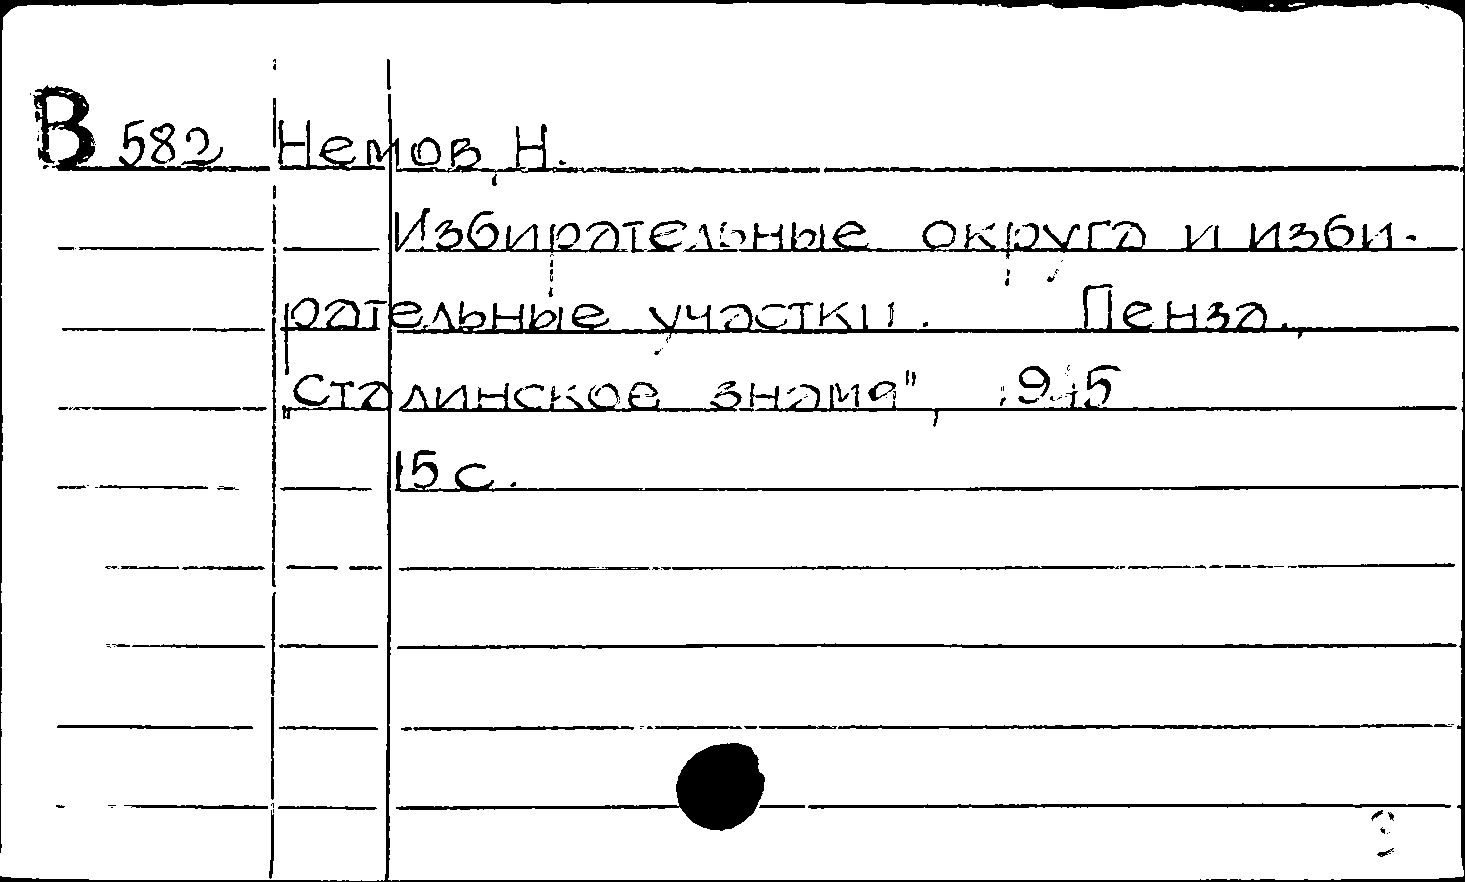 В 582 Немов, Н.
Избирательные округа и изби-
рательные участки. Пенза.,
„Сталинское знамя",
15 с.